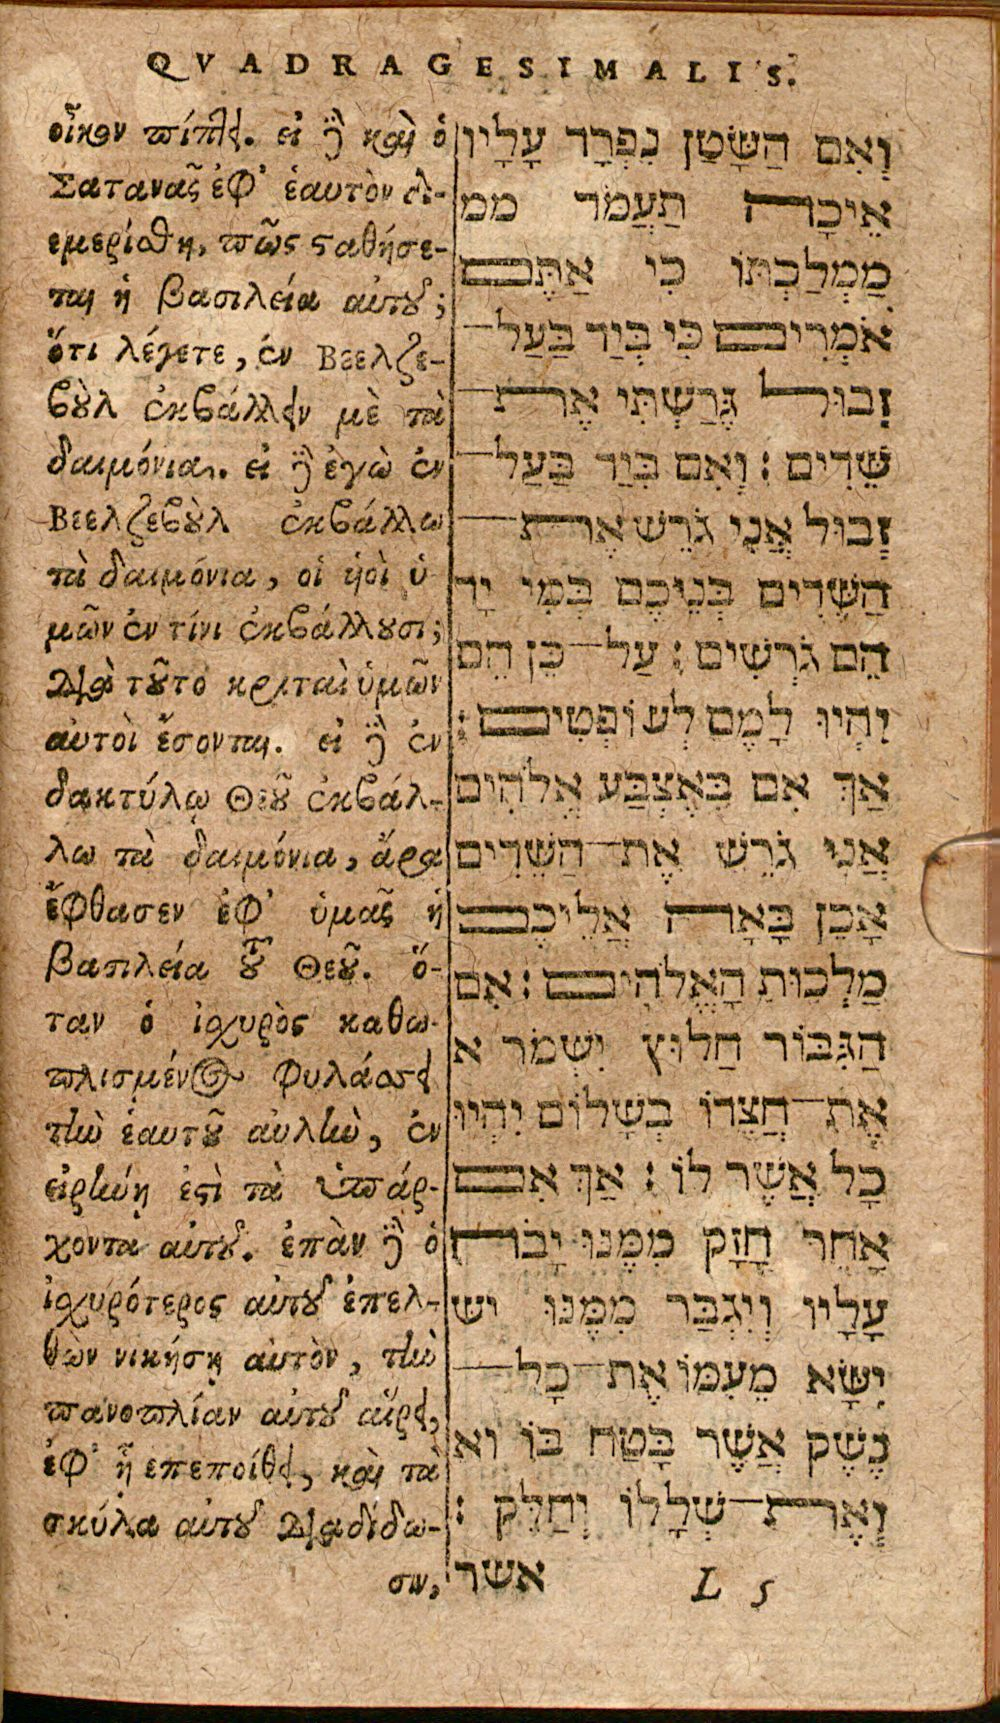 QVADRAGESIMALIS.
οἶκον πίπτει. εἰ δὲ καὶ ὁ
Σατανᾶς ἐφ' ἑαυτὸν δι-
εμερίσθη, πῶς σταθήσε-
ται ἡ βασιλεία αὐτοῦ;
ὅτι λέγετε, ἐν Βεελζε-
βοὺλ ἐκβάλλειν μὲ τὰ
δαιμόνια. εἰ δὲ ἐγὼ ἐν
Βεελζεβοὺλ ἐκβάλλω
τὰ δαιμόνια, οἱ υἱοὶ ὑ
μῶν ἐν τίνι ἐκβάλλουσι;
Διὰ τοῦτο κριταὶ ὑμῶν
αὐτοὶ ἔσονται. εἰ δὲ ἐν
δακτύλῳ Θεοῦ ἐκβάλ-
λω τὰ δαιμόνια, ἄρα
ἔφθασεν ἐφ' ὑμᾶς ἡ
βασιλεία τοῦ Θεοῦ. ὅ-
ταν ὁ ἰσχυρὸς καθω-
πλισμένος φυλάσσει
τὴν ἑαυτοῦ αὐλὴν, ἐν
εἰρήνῃ ἐστὶ τὰ ὑπάρ-
χοντα αὐτοῦ. ἐπὰν δὲ ὁ
ἰσχυρότερος αὐτοῦ ἐπελ-
θὼν νικήσῃ αὐτὸν, τὴν
πανοπλίαν αὐτοῦ αἴρει,
ἐφ' ᾗ επεποίθει, καὶ τὰ
σκύλα αὐτοῦ Διαδίδω-
σιν,
וְאִם הַשָּׂטַן נִפְרָד עָלָיו
אֵיכָה תַּעֲמֹד ממ
מַמְלַכְתּוֹ כִּי אַתֶּם
אֹמְרִים כִּי בְּיַד בַּעַל־
זְבוּל גֵּרַשְׁתִּי אֶת־
שֵׁדִים : וְאִם בְּיַד בַּעַל־
זְבוּל אֲנִי גֹרֵשׁ אֶת־
הַשֵּׁדִים בְּנֵיכֶם בְּמִי יָד
הֵם גֹּרְשִׁים : עַל־כֵּן הֵם
יִהְיוּ לָמֶם לְשׁוֹפְטִים :
אַךְ אִם בְּאֶצְבַּע אֱלֹהִים
אֲנִי גֹרֵשׁ אֶת־הַשֵּׁדִים
אָכֵן בָּאָה אֲלֵיכֶם
מַלְכוּת הָאֱלֹהִים : אִם
הַגִּבּוֹר חַלוּץ יִשְׁמֹר א
אֶת־חֲצֵרוֹ בְּשָׁלוֹם יִהְיוּ
כָּל אֲשֶׁר לוֹ : אַךְ אִם
אַחֵר חֲזָק מִמֶּנּוּ יָבֹה
עָלָיו וְיִגְבַּר מִמֶּנּוּ יש
יִשָּׂא מֵעִמּוֹ אֶת־כָּל־
נֶשֶׁק אֲשֶׁר בָּטַח בּוֹ וא
וְאֶת־שְׁלָלוֹ יְחַלֵּק :
אשר
L 5